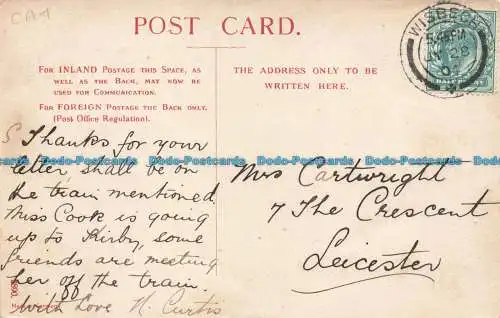 CA4
POST CARD.
FOR INLAND POSTAGE THIS SPACE, AS
WELL AS THE BACK, MAY NOW BE
USED FOR COMMUNICATION.
FOR FOREIGN POSTAGE THE BACK ONLY.
(Post Office Regulation).
THE ADDRESS ONLY TO BE
WRITTEN HERE.
WISBECH
HALFPENNY
Thanks for your
letter, shall be on
the train mentioned
Miss Cook is going
up to Kirby, some
friends are meeting
her off the train.
With Love H. Curtis
Mrs Cartwright
7 The Crescent
Leicester
Dodo-Postcards Dodo-Postcards Dodo-Postcards Dodo-Postcards